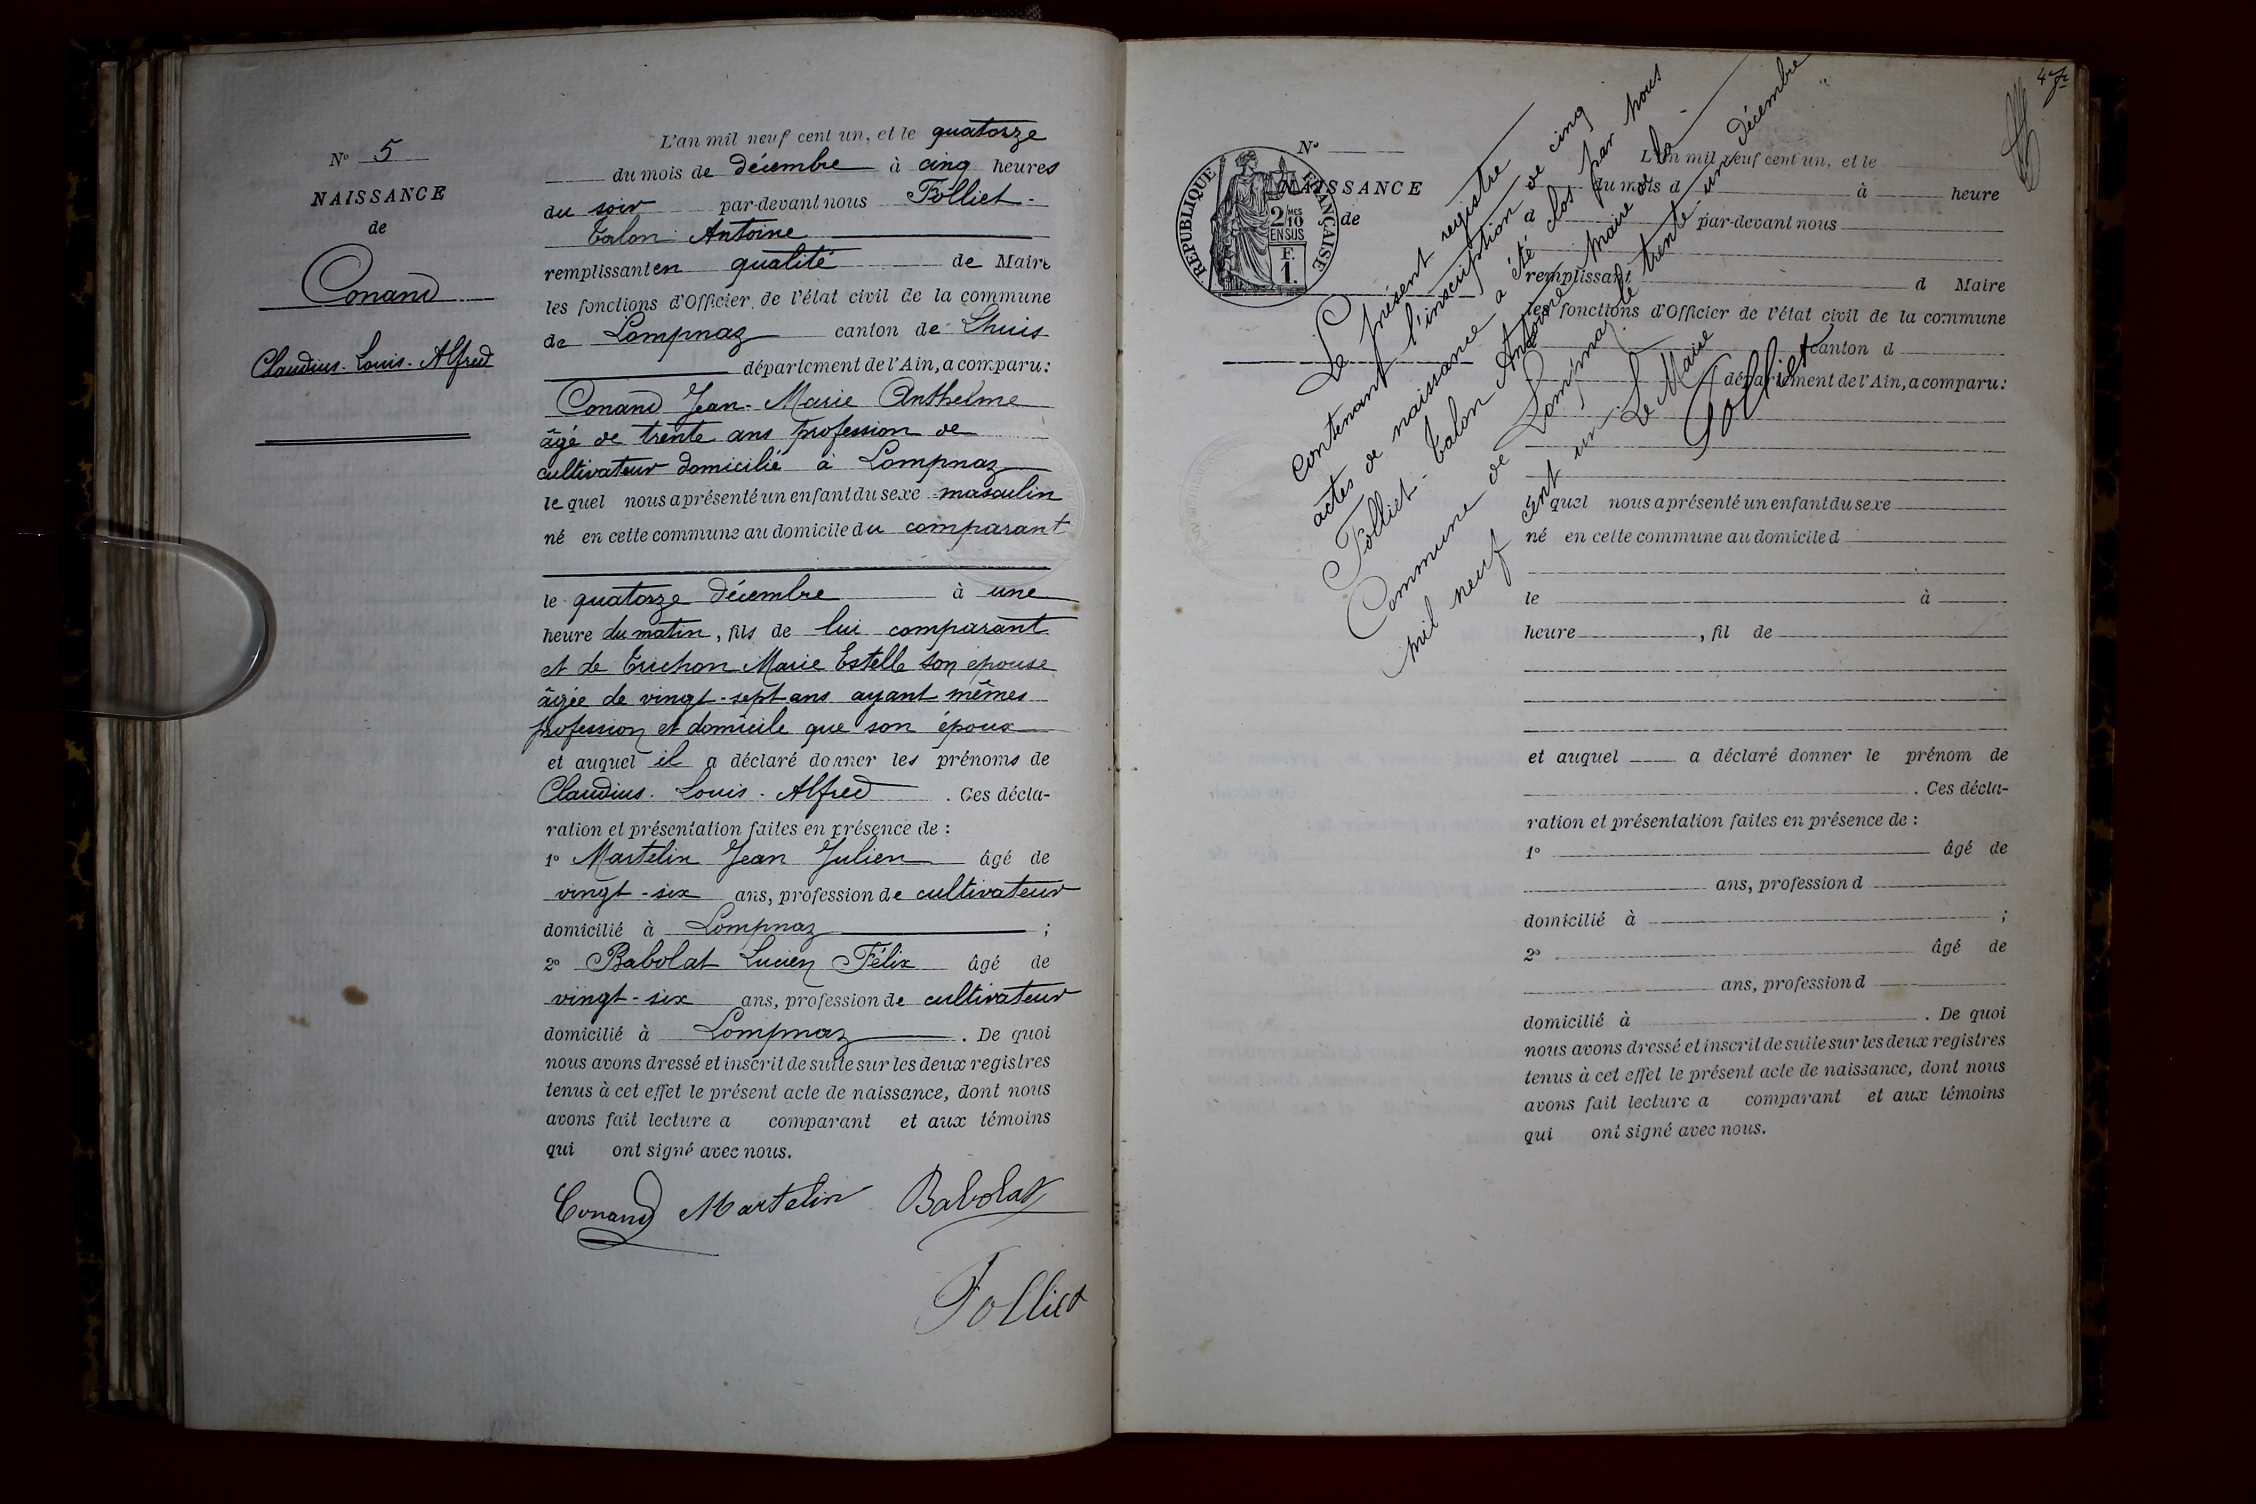 N° 5
NAISSANCE
de
Conand
Claudius. Louis. Alfred
L'an mil neuf cent un, et le quatorze
du mois de décembre à cinq heures
du soir par-devant nous Folliet-
Talon Antoine
remplissant en qualité de Maire
les fonctions d'Officier de l'état civil de la commune
de Lompnaz canton de Lhuis
département de l'Ain, a comparu:
Conand Jean-Marie Anthelme
âgé de trente ans profession de
cultivateur domicilié à Lompnaz
le quel nous a présenté un enfant du sexe masculin
né en cette commune au domicile du comparant
le quatorze décembre à une
heure du matin, fils de lui comparant
et de Truchon Marie Estelle son épouse
âgée de vingt-sept ans ayant mêmes
profession et domicile que son époux
et auquel il a déclaré donner les prénoms de
Claudius. Louis. Alfred. Ces décla-
ration et présentation faites en présence de :
1° Martelin Jean Julien âgé de
vingt-six ans, profession de cultivateur
domicilié à Lompnaz ;
2° Babolat Lucien Félix âgé de
vingt-six ans, profession de cultivateur
domicilié à Lompnaz. De quoi
nous avons dressé et inscrit de suite sur les deux registres
tenus à cet effet le présent acte de naissance, dont nous
avons fait lecture a comparant et aux témoins
qui ont signé avec nous.
Conand Martelin Babolat
Folliet
N°
NAISSANCE
de
RÉPUBLIQUE FRANÇAISE
2/10 MES
EN SUS
F.
1.
L'an mil neuf cent un, et le
du mois d à heure
d par-devant nous
remplissant d Maire
les fonctions d'Officier de l'état civil de la commune
canton d
département de l'Ain, a comparu:
le quel nous a présenté un enfant du sexe
né en cette commune au domicile d
le à
heure , fil de
et auquel a déclaré donner le prénom de
. Ces décla-
ration et présentation faites en présence de :
1° âgé de
ans, profession d
domicilié à ;
2° âgé de
ans, profession d
domicilié à . De quoi
nous avons dressé et inscrit de suite sur les deux registres
tenus à cet effet le présent acte de naissance, dont nous
avons fait lecture a comparant et aux témoins
qui ont signé avec nous.
Le présent registre
contenant l'inscription de cinq
actes de naissance a été clos par nous
Folliet-Talon Antoine maire de la
Commune de Lompnaz le trente-un décembre
mil neuf cent un.
Le Maire
Folliet